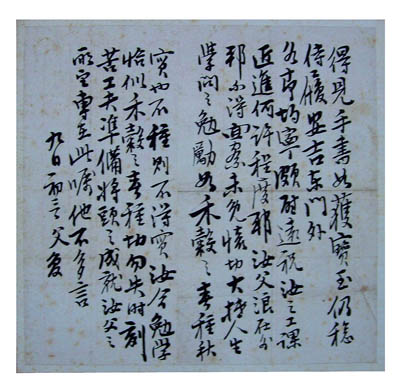 得見手書如獲寶玉仍稔
侍履安吉東門外
各節均寧頗耐遠祝汝之工課
近進何許程度耶汝父浪在外
耶不得面察未免懷切大抵人生
學問之勉勵如禾穀之春種秋
實也不種則不得實汝今勉學
恰似禾穀之春種切勿失時刻
苦工夫準備將頭之成就汝父之
所望專在此嘱他不多言
九日 父